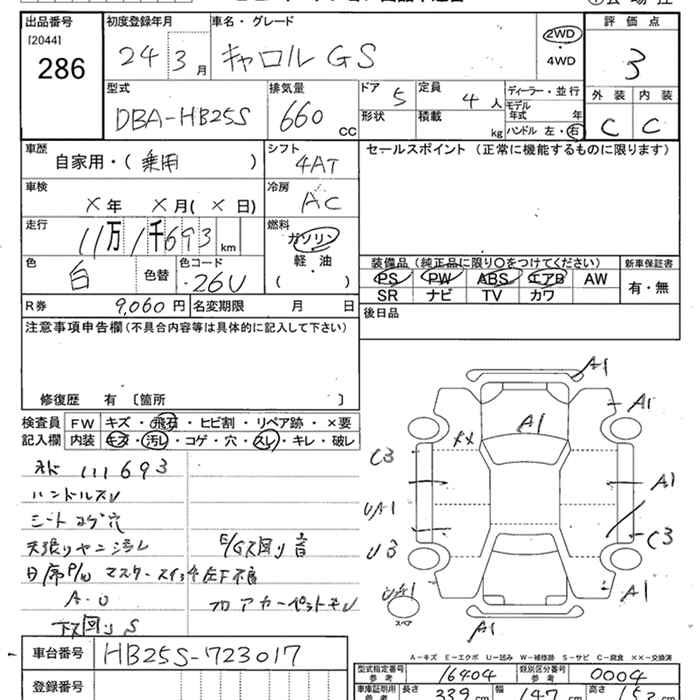 出品番号
[2044]
286
初度登録年月
24 3月
車名・グレード
キャロル GS
2WD
・
4WD
評価点
3
外装 内装
C C
型式
DBA-HB25S
排気量
660 CC
ドア 5
定員 4人
形状
積載 kg
ディーラー・並行
モデル年式 年
ハンドル 左・右
車歴
自家用・( 乗用 )
シフト
4AT
セールスポイント (正常に機能するものに限ります)
車検
×年 ×月( ×日)
冷房
AC
走行
11万1千693 km
燃料
ガソリン
軽・油
( )
色
白
色替
色コード
26U
装備品 (純正品に限り○をつけてください)
PS PW ABS エアB AW
SR ナビ TV カワ
新車保証書
有・無
R券 9,060円
名変期限 月 日
後日品
注意事項申告欄 (不具合内容等は具体的に記入して下さい)
修復歴 有 〔箇所 〕
検査員記入欄
FW キズ・飛石・ヒビ割・リペア跡・×要
内装 キズ・汚レ・コゲ・穴・スレ・キレ・破レ
111693
ハンドルスレ
シートコゲ穴
天張りヤニ汚レ
E/G廻り音
マスタースイッチ
不良
フロアカーペット
下廻りS
A1
A1
A1
C3
A1
U3
C3
A1
A1
スペア
A-キズ E-エクボ U-凹み W-補修跡 S-サビ C-腐食 ××-交換済
車台番号 HB25S-723017
登録番号
型式指定番号 参考 16404
類別区分番号 参考 0004
車庫証明用 参考
長さ 339cm
幅 147cm
高さ